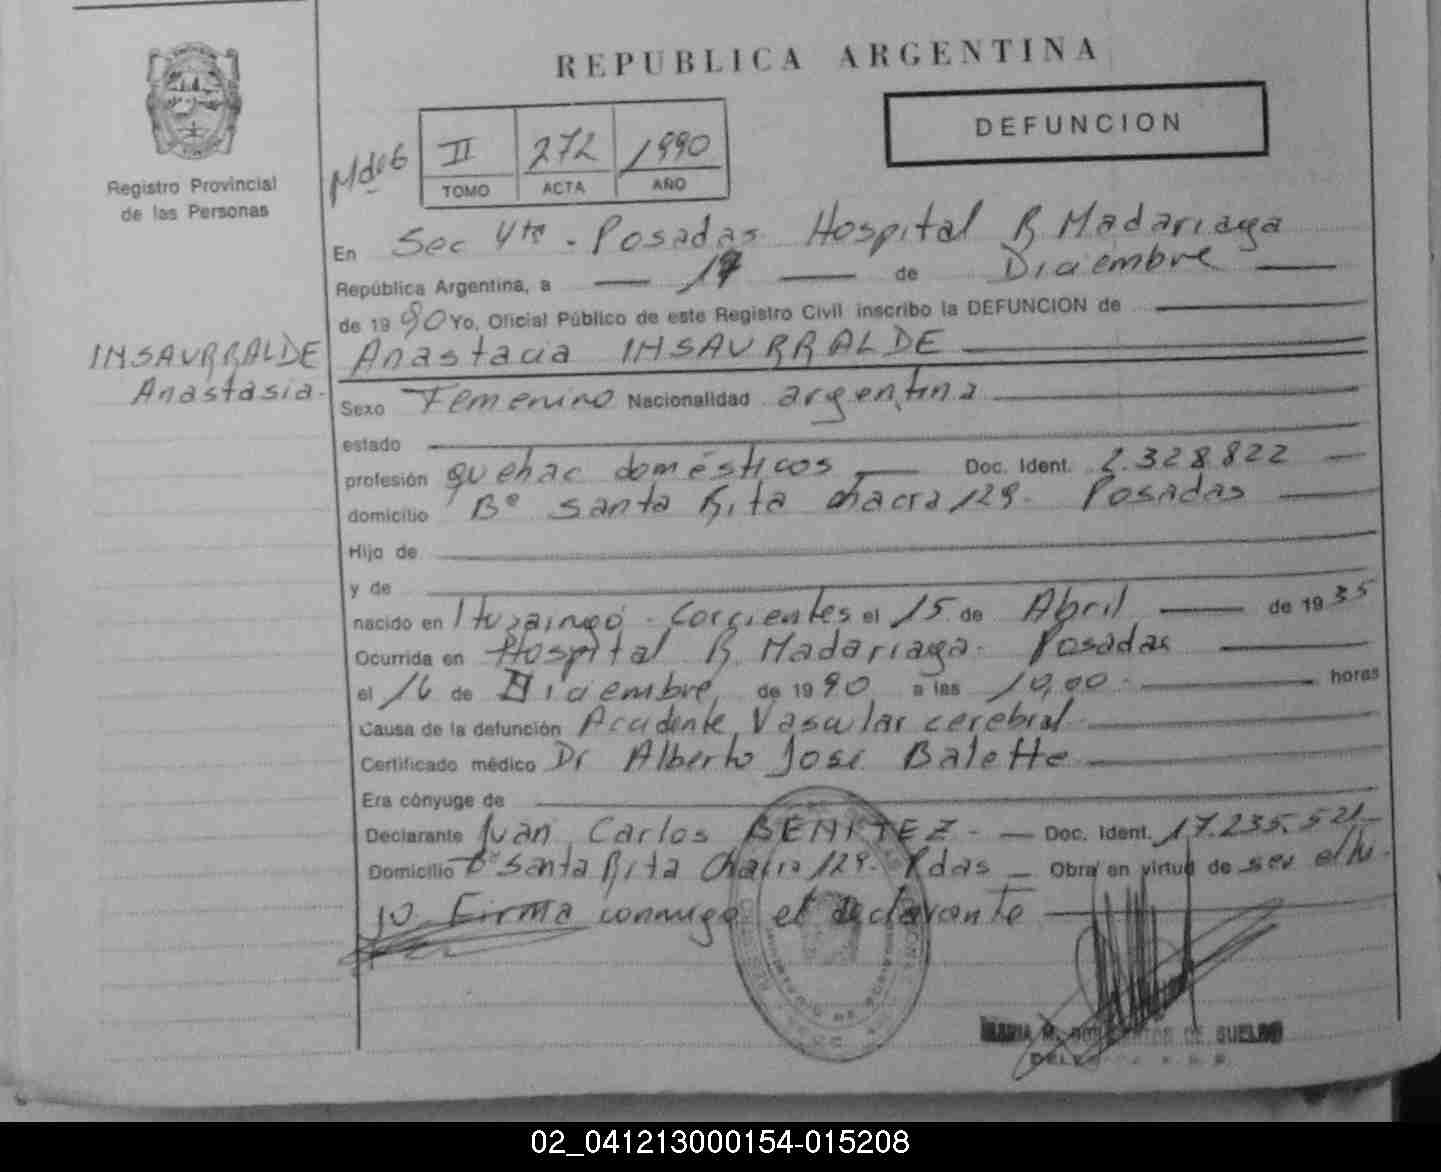 REPUBLICA ARGENTINA
DEFUNCION
Registro Provincial
de las Personas
II 272 1990
TOMO ACTA AÑO
En Sec 4ta - Posadas Hospital R Madariaga
República Argentina, a 17 de Diciembre
de 1990 Yo, Oficial Público de este Registro Civil inscribo la DEFUNCION de
INSAURRALDE
Anastasia.
Anastacia INSAURRALDE
Sexo Femenino Nacionalidad argentina
estado
profesión quehac domésticos Doc. Ident. 2.328.822
domicilio Bº Santa Rita chacra 129. Posadas
Hijo de
y de
nacido en Ituzaingó - Corrientes el 15 de Abril de 1935
Ocurrida en Hospital R Madariaga - Posadas
el 16 de Diciembre de 1990 a las 10,00 horas
Causa de la defunción Accidente Vascular cerebral
Certificado médico Dr Alberto José Balette
Era cónyuge de
Declarante Juan Carlos BENITEZ - Doc. Ident. 17.235.521
Domicilio Bº Santa Rita Chacra 129 - Pdas Obra en virtud de ser el hi-
jo. Firma conmigo el declarante
MARIA M. DE SUELDO
02_041213000154-015208